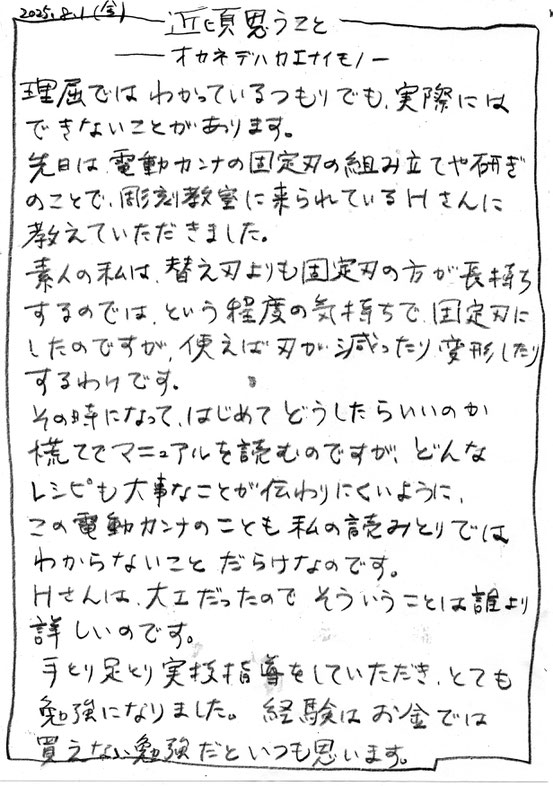 2025.8.1(金)
近頃思うこと
――オカネデハカエナイモノ―
理屈ではわかっているつもりでも、実際には
できないことがあります。
先日は、電動カンナの固定刃の組み立てや研ぎ
のことで、彫刻教室に来られているHさんに
教えていただきました。
素人の私は、替え刃よりも固定刃の方が長持ち
するのでは、という程度の気持ちで、固定刃に
したのですが、使えば刃が減ったり、変形したり
するわけです。
その時になって、はじめてどうしたらいいのか
慌ててマニュアルを読むのですが、どんな
レシピも大事なことが伝わりにくいように、
この電動カンナのことも私の読みとりでは
わからないことだらけなのです。
Hさんは、大工だったのでそういうことは誰より
詳しいのです。
手とり足とり実技指導をしていただき、とても
勉強になりました。経験はお金では
買えない勉強だといつも思います。